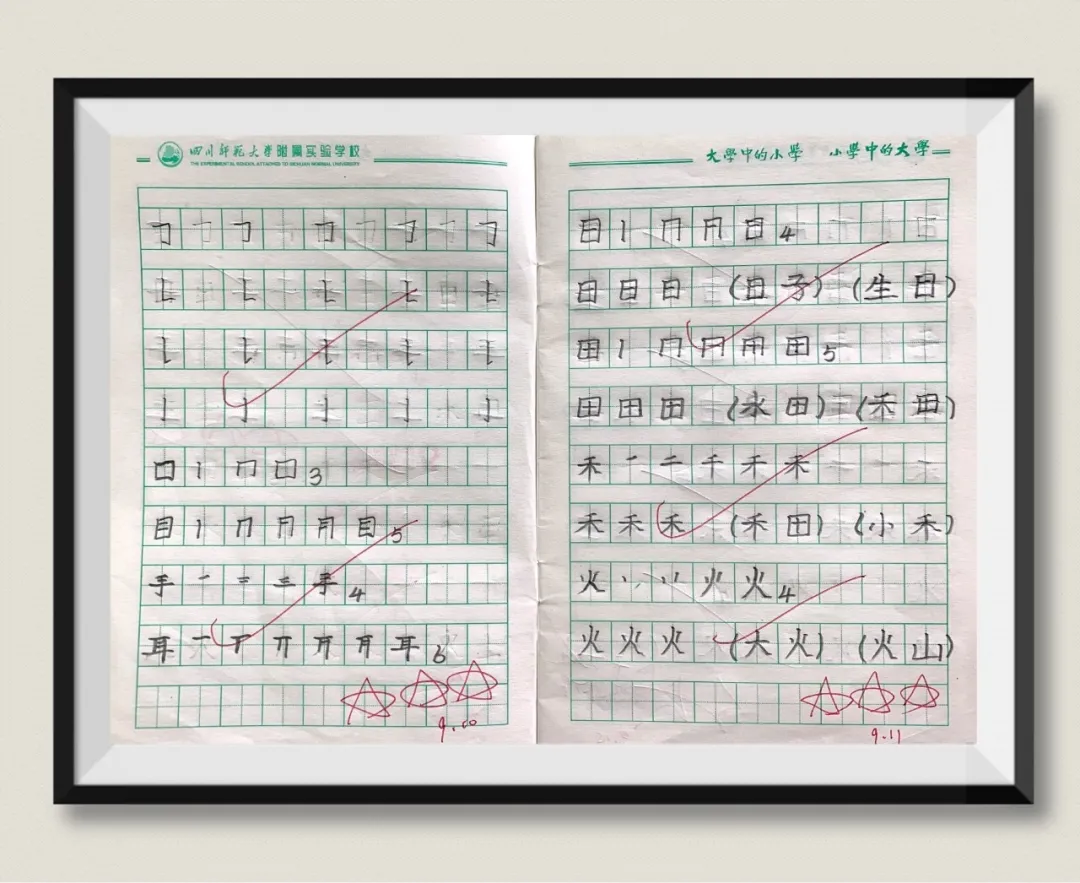 四川师范大学附属实验学校
THE EXPERIMENTAL SCHOOL ATTACHED TO SICHUAN NORMAL UNIVERSITY
㇆ ㇆ ㇆ ㇆ ㇆
口 丨 冂 口 3
目 丨 冂 目 5
手 一 二 三 手 4
耳 一 丅 耳 6
9.10
大學中的小學 小學中的大學
日 丨 冂 日 4
日 日 日 (日子) (生日)
田 丨 冂 田 5
田 田 田 (水田) (禾田)
禾 一 二 千 禾 禾
禾 禾 禾 (禾田) (小禾)
火 丶 丷 火 火 4
火 火 火 (大火) (火山)
9.11